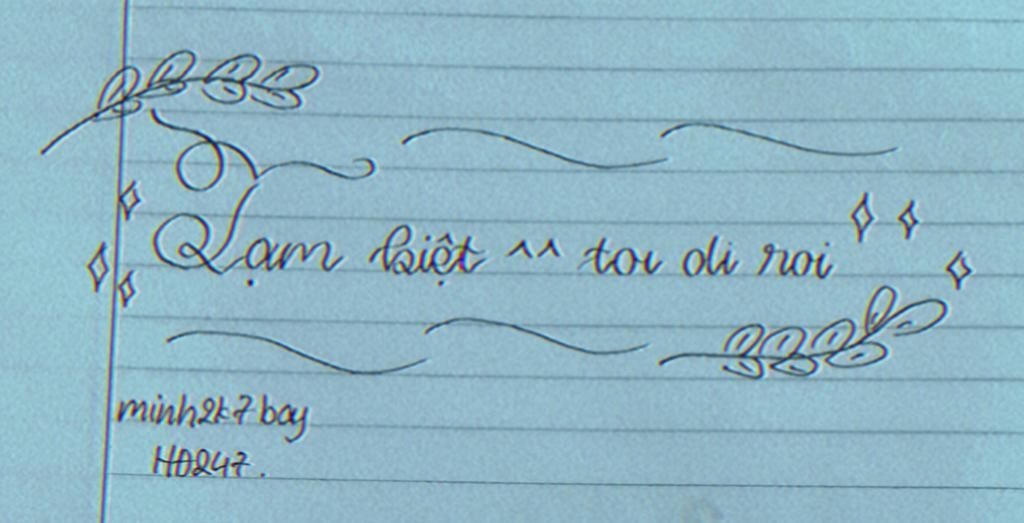 Tạm biệt ^^ toi di roi
minh2k7 boy
HD247.